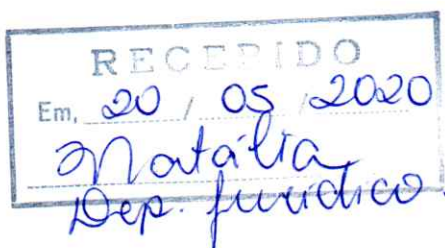 RECEBIDO
Em, 20 / 05 / 2020
Natália
Dep. jurídico.